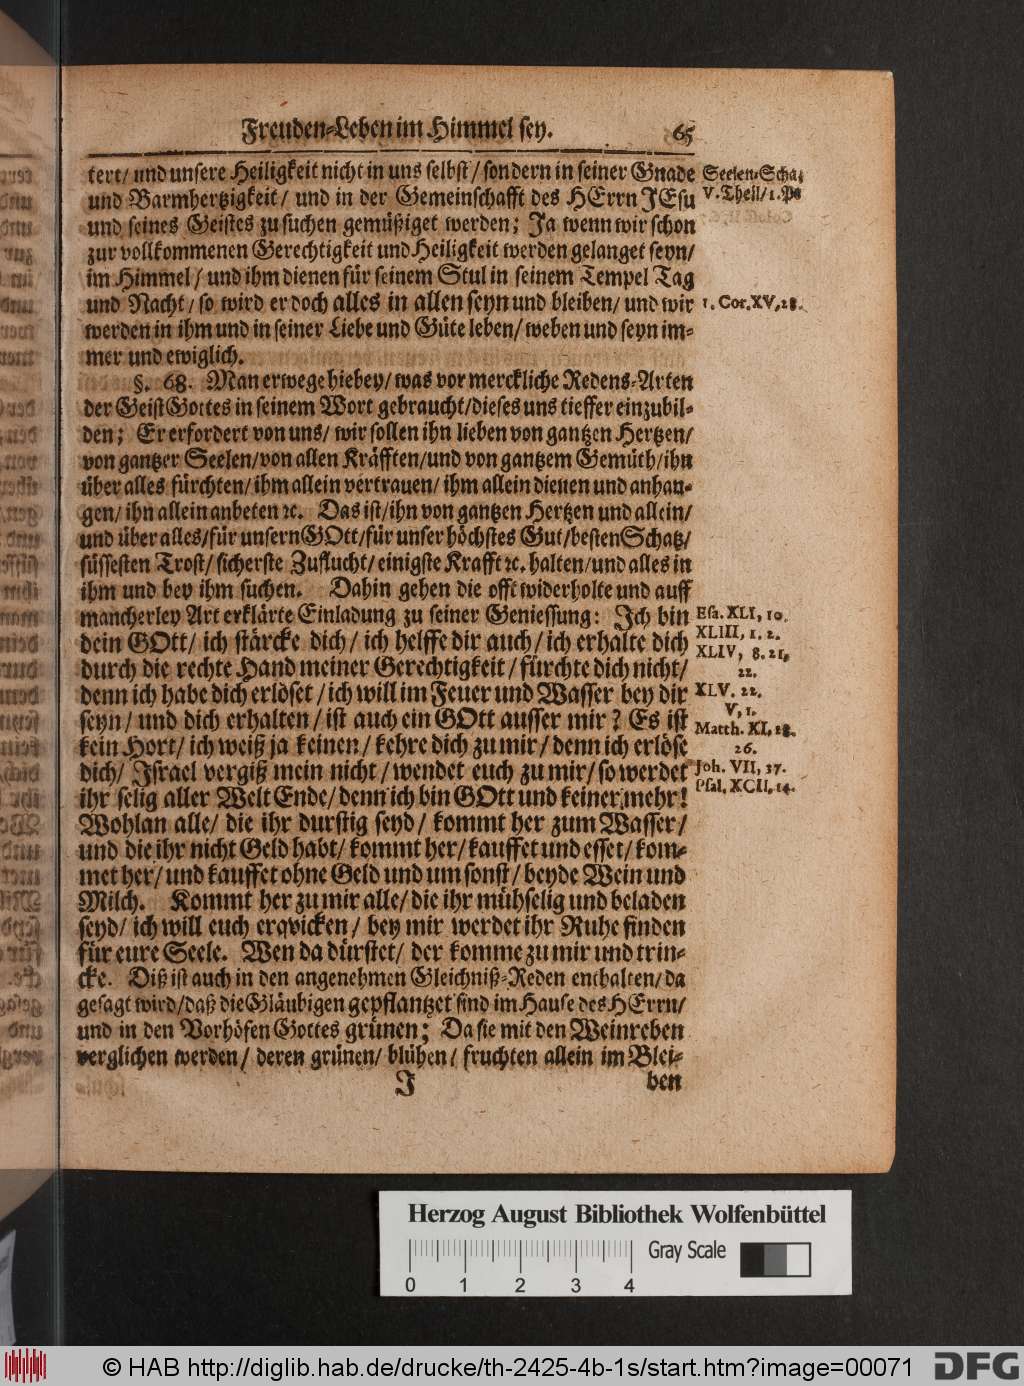 Freuden-Leben im Himmel sey. 65
tert/ und unsere Heiligkeit nicht in uns selbst/ sondern in seiner Gnade
und Barmhertzigkeit/ und in der Gemeinschafft des HErrn JEsu
und seines Geistes zu suchen gemüßiget werden; Ja wenn wir schon
zur vollkommenen Gerechtigkeit und Heiligkeit werden gelanget seyn/
im Himmel/ und ihm dienen für seinem Stul in seinem Tempel Tag
und Nacht/ so wird er doch alles in allen seyn und bleiben/ und wir
werden in ihm und in seiner Liebe und Güte leben/ weben und seyn im-
mer und ewiglich.
§. 68. Man erwege hiebey/ was vor merckliche Redens-Arten
der Geist Gottes in seinem Wort gebraucht/ dieses uns tieffer einzubil-
den; Er erfordert von uns/ wir sollen ihn lieben von gantzen Hertzen/
von gantzer Seelen/ von allen Kräfften/ und von gantzem Gemüth/ ihn
über alles fürchten/ ihm allein vertrauen/ ihm allein dienen und anhan-
gen/ ihn allein anbeten ꝛc. Das ist/ ihn von gantzen Hertzen und allein/
und über alles/ für unsern GOtt/ für unser höchstes Gut/ besten Schatz/
süssesten Trost/ sicherste Zuflucht/ einigste Krafft ꝛc. halten/ und alles in
ihm und bey ihm suchen. Dahin gehen die offt widerholte und auff
mancherley Art erklärte Einladung zu seiner Geniessung: Ich bin
dein GOtt/ ich stärcke dich/ ich helffe dir auch/ ich erhalte dich
durch die rechte Hand meiner Gerechtigkeit/ fürchte dich nicht/
denn ich habe dich erlöset/ ich will im Feuer und Wasser bey dir
seyn/ und dich erhalten/ ist auch ein GOtt ausser mir? Es ist
kein Hort/ ich weiß ja keinen/ kehre dich zu mir/ denn ich erlöse
dich/ Israel vergiß mein nicht/ wendet euch zu mir/ so werdet
ihr selig aller Welt Ende/ denn ich bin GOtt und keiner mehr!
Wohlan alle/ die ihr durstig seyd/ kommt her zum Wasser/
und die ihr nicht Geld habt/ kommt her/ kauffet und esset/ kom-
met her/ und kauffet ohne Geld und umsonst/ beyde Wein und
Milch. Kommt her zu mir alle/ die ihr mühselig und beladen
seyd/ ich will euch erqvicken/ bey mir werdet ihr Ruhe finden
für eure Seele. Wen da dürstet/ der komme zu mir und trin-
cke. Diß ist auch in den angenehmen Gleichniß-Reden enthalten/ da
gesagt wird/ daß die Gläubigen gepflantzet sind im Hause des HErrn/
und in den Vorhöfen Gottes grünen; Da sie mit den Weinreben
verglichen werden/ deren grünen/ blühen/ fruchten allein im Blei-
J ben
Seelen-Scha;
V. Theil/ 1.
1. Cor. XV, 28.
Esa. XLI, 10.
XLIII, 1. 2.
XLIV, 8. 21,
22.
XLV. 22.
V, 1.
Matth. XI, 28.
26.
Joh. VII, 37.
Psal. XCII, 14.
Herzog August Bibliothek Wolfenbüttel
Gray Scale
0 1 2 3 4
© HAB http://diglib.hab.de/drucke/th-2425-4b-1s/start.htm?image=00071
DFG